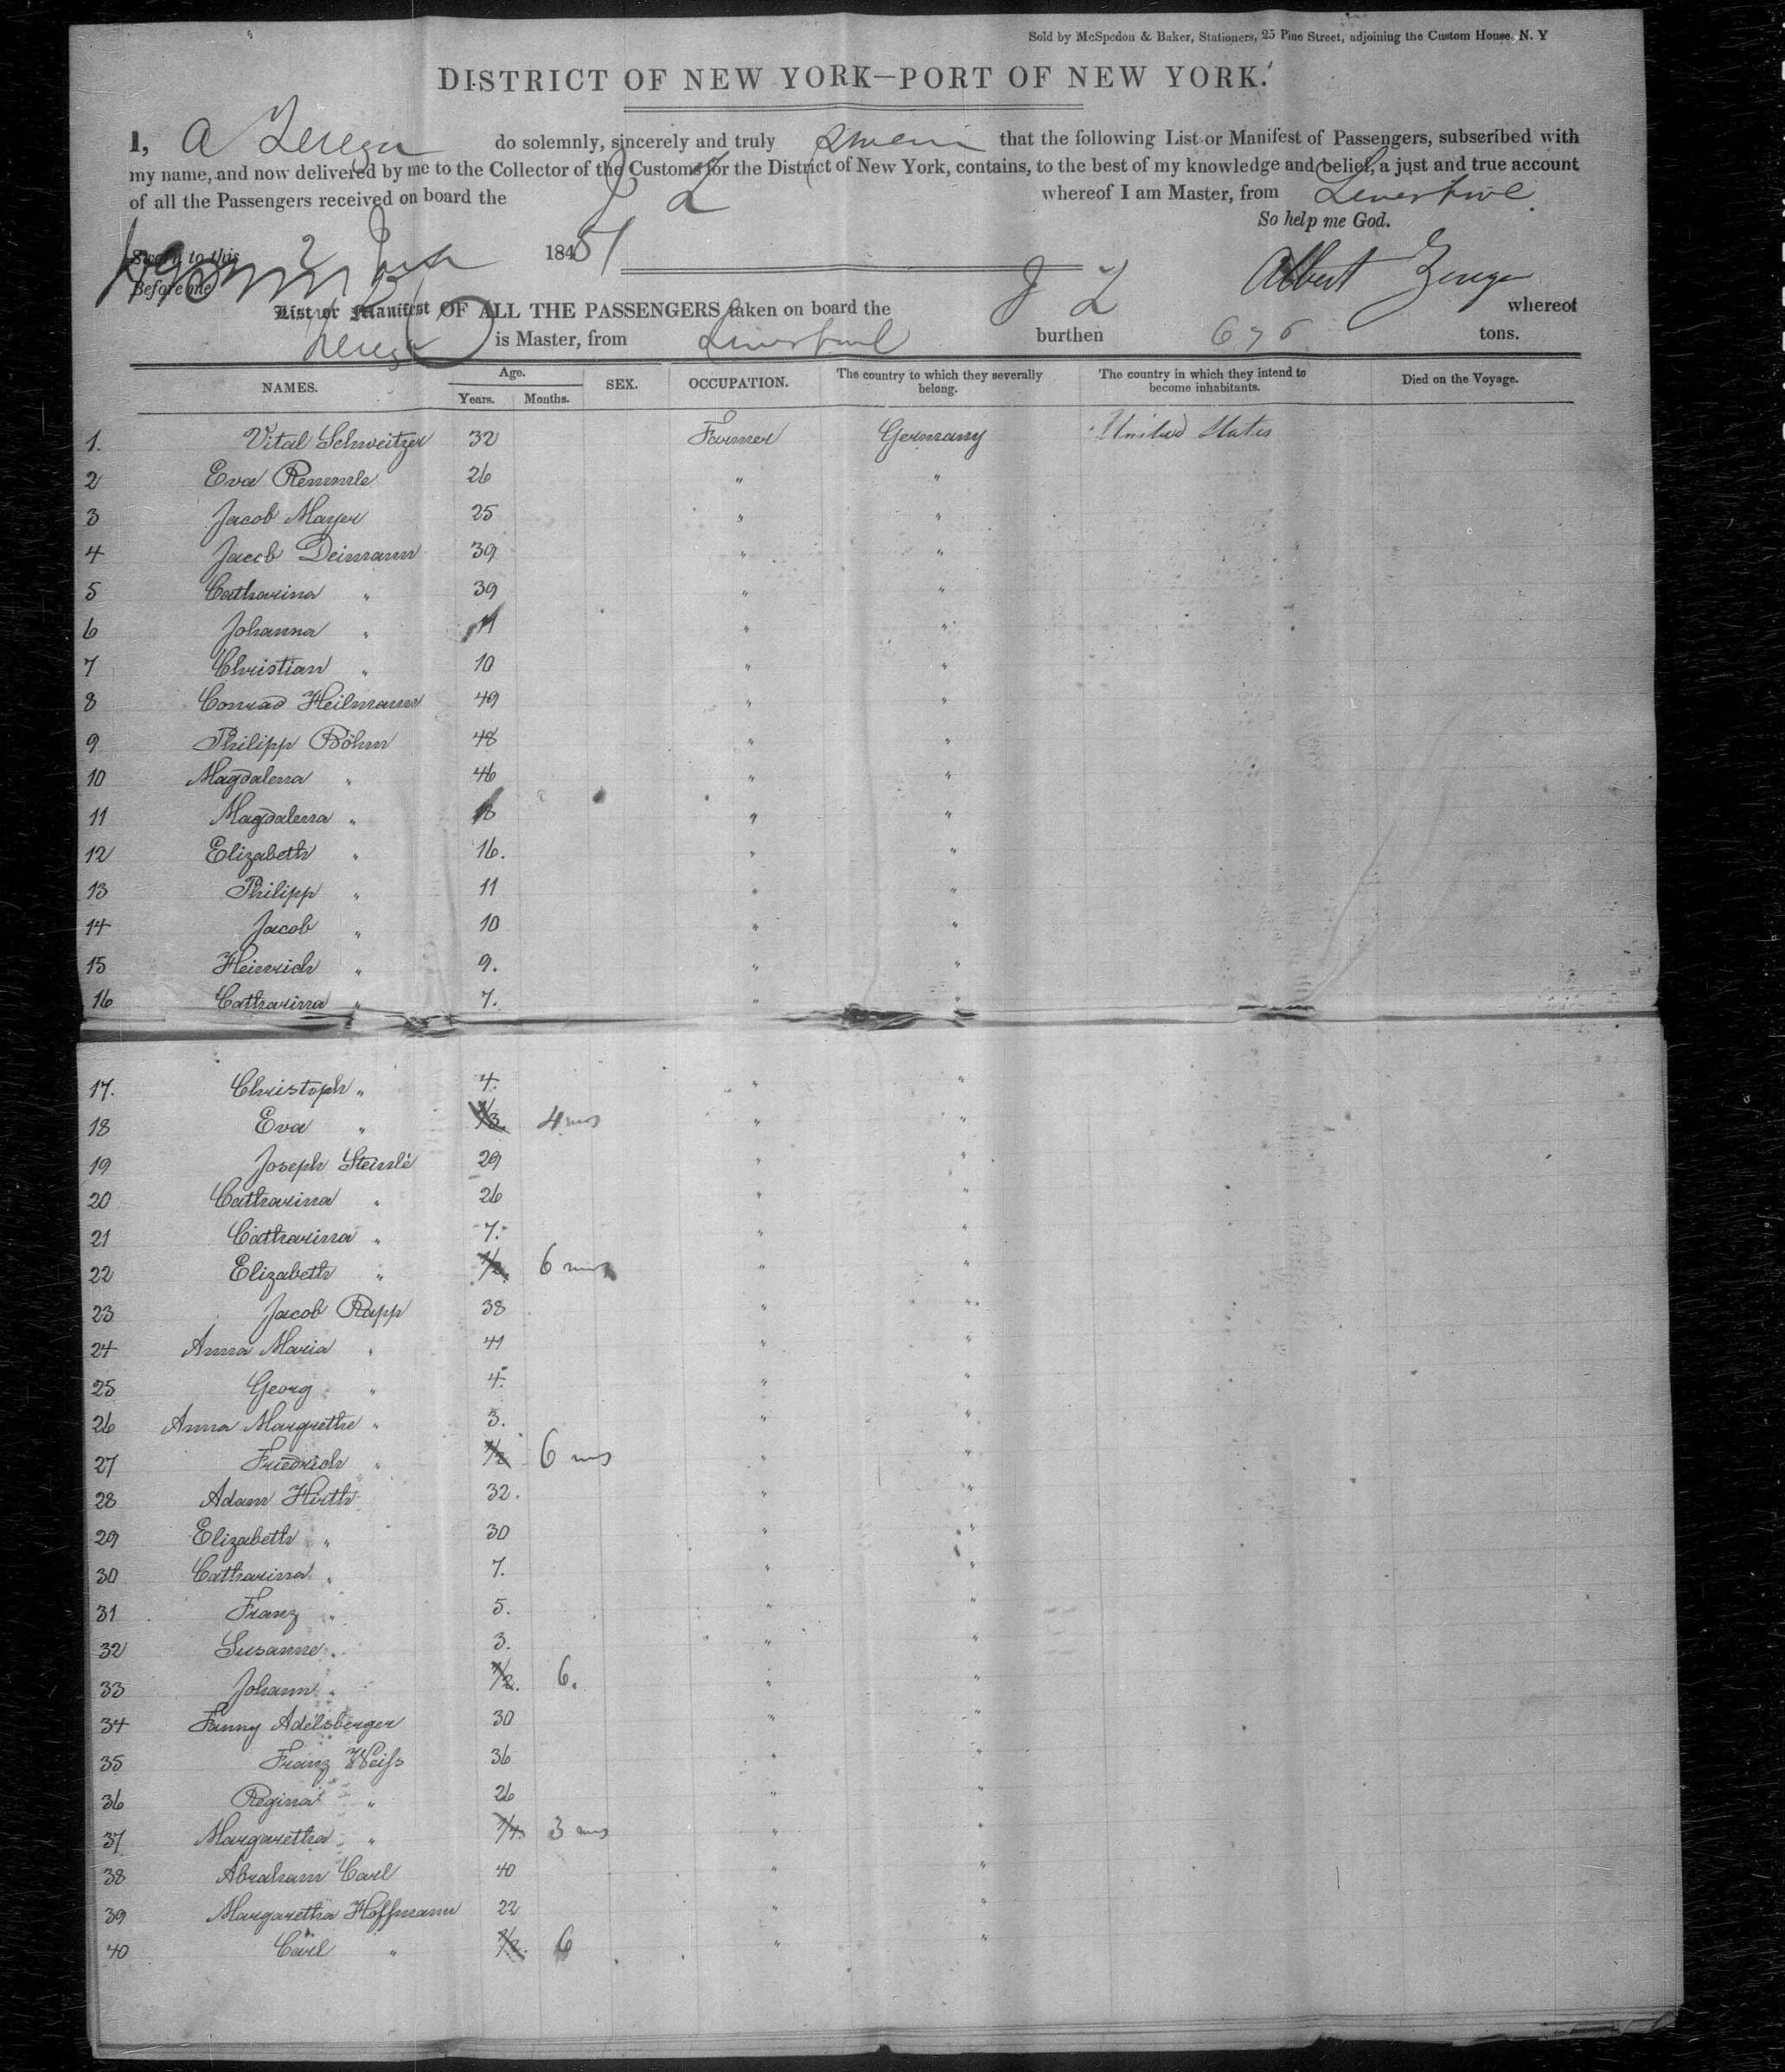 Sold by McSpedon & Baker, Stationers, 25 Pine Street, adjoining the Custom House, N. Y
DISTRICT OF NEW YORK—PORT OF NEW YORK.
I, A Zerega do solemnly, sincerely and truly swear that the following List or Manifest of Passengers, subscribed with
my name, and now delivered by me to the Collector of the Customs for the District of New York, contains, to the best of my knowledge and belief, a just and true account
of all the Passengers received on board the J Z whereof I am Master, from Liverpool
So help me God.
Sworn to this 2 1851
Before me
Albert Zerega
List or Manifest OF ALL THE PASSENGERS taken on board the J Z whereof
Zerega is Master, from Liverpool burthen 676 tons.
NAMES. Age. Years. Months. SEX. OCCUPATION. The country to which they severally belong. The country in which they intend to become inhabitants. Died on the Voyage.
1. Vital Schweitzer 32 Farmer Germany United States
2 Eva Remmle 26 " "
3 Jacob Mayer 25 " "
4 Jacob Deimann 39 " "
5 Catharina " 39 " "
6 Johanna " 11 " "
7 Christian " 10 " "
8 Conrad Heilmann 49 " "
9 Philipp Böhm 48 " "
10 Magdalena " 46 " "
11 Magdalena " 18 " "
12 Elizabeth " 16. " "
13 Philipp " 11 " "
14 Jacob " 10 " "
15 Heinrich " 9. " "
16 Catharina " 7. " "
17. Christoph " 4. " "
18 Eva " 1/3. 4 mos " "
19 Joseph Steinlé 29 " "
20 Catharina " 26 " "
21 Catharina " 7. " "
22 Elizabeth " 1/2. 6 mos " "
23 Jacob Rapp 38 " "
24 Anna Maria " 41 " "
25 Georg " 4. " "
26 Anna Margrethe " 3. " "
27 Friedrich " 1/2 6 mos " "
28 Adam Hirth 32. " "
29 Elizabeth " 30 " "
30 Catharina " 7. " "
31 Franz " 5. " "
32 Susanne " 3. " "
33 Johann " 1/2. 6. " "
34 Fanny Adelsberger 30 " "
35 Franz Weiß 36 " "
36 Regina " 26 " "
37 Margaretha " 1/4. 3 mos " "
38 Abraham Carl 40 " "
39 Margaretha Hoffmann 22 " "
40 Carl " 1/2. 6 " "